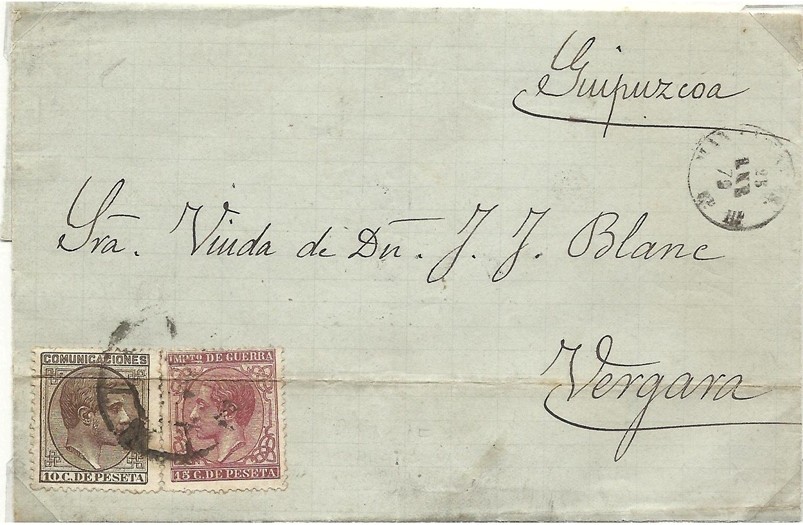 Guipuzcoa
25
ENE
79
Sra. Viuda de Dn. J. J. Blanc
Vergara
COMUNICACIONES
10 C. DE PESETA
IMPTO DE GUERRA
15 C. DE PESETA